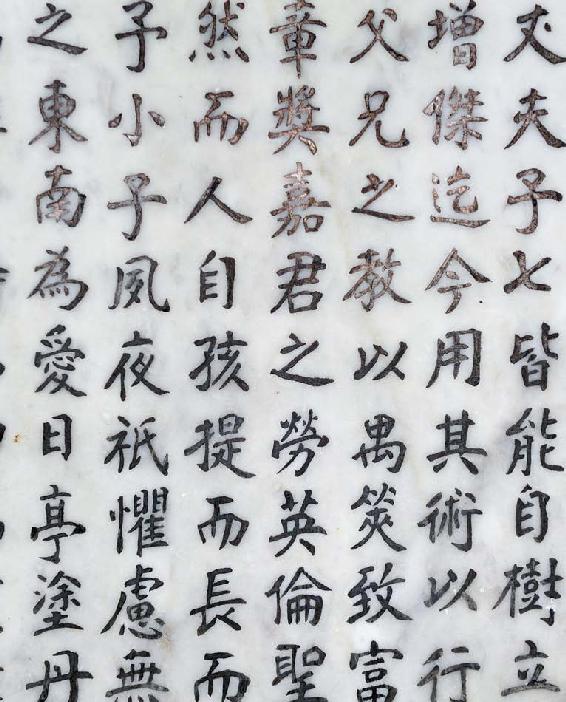 丈夫子七皆能自樹立
增傑迄今用其術以行
父兄之教以禺筴致富
章獎嘉君之勞英倫聖
然而人自孩提而長而
予小子夙夜祇懼慮無
之東南為愛日亭塗丹